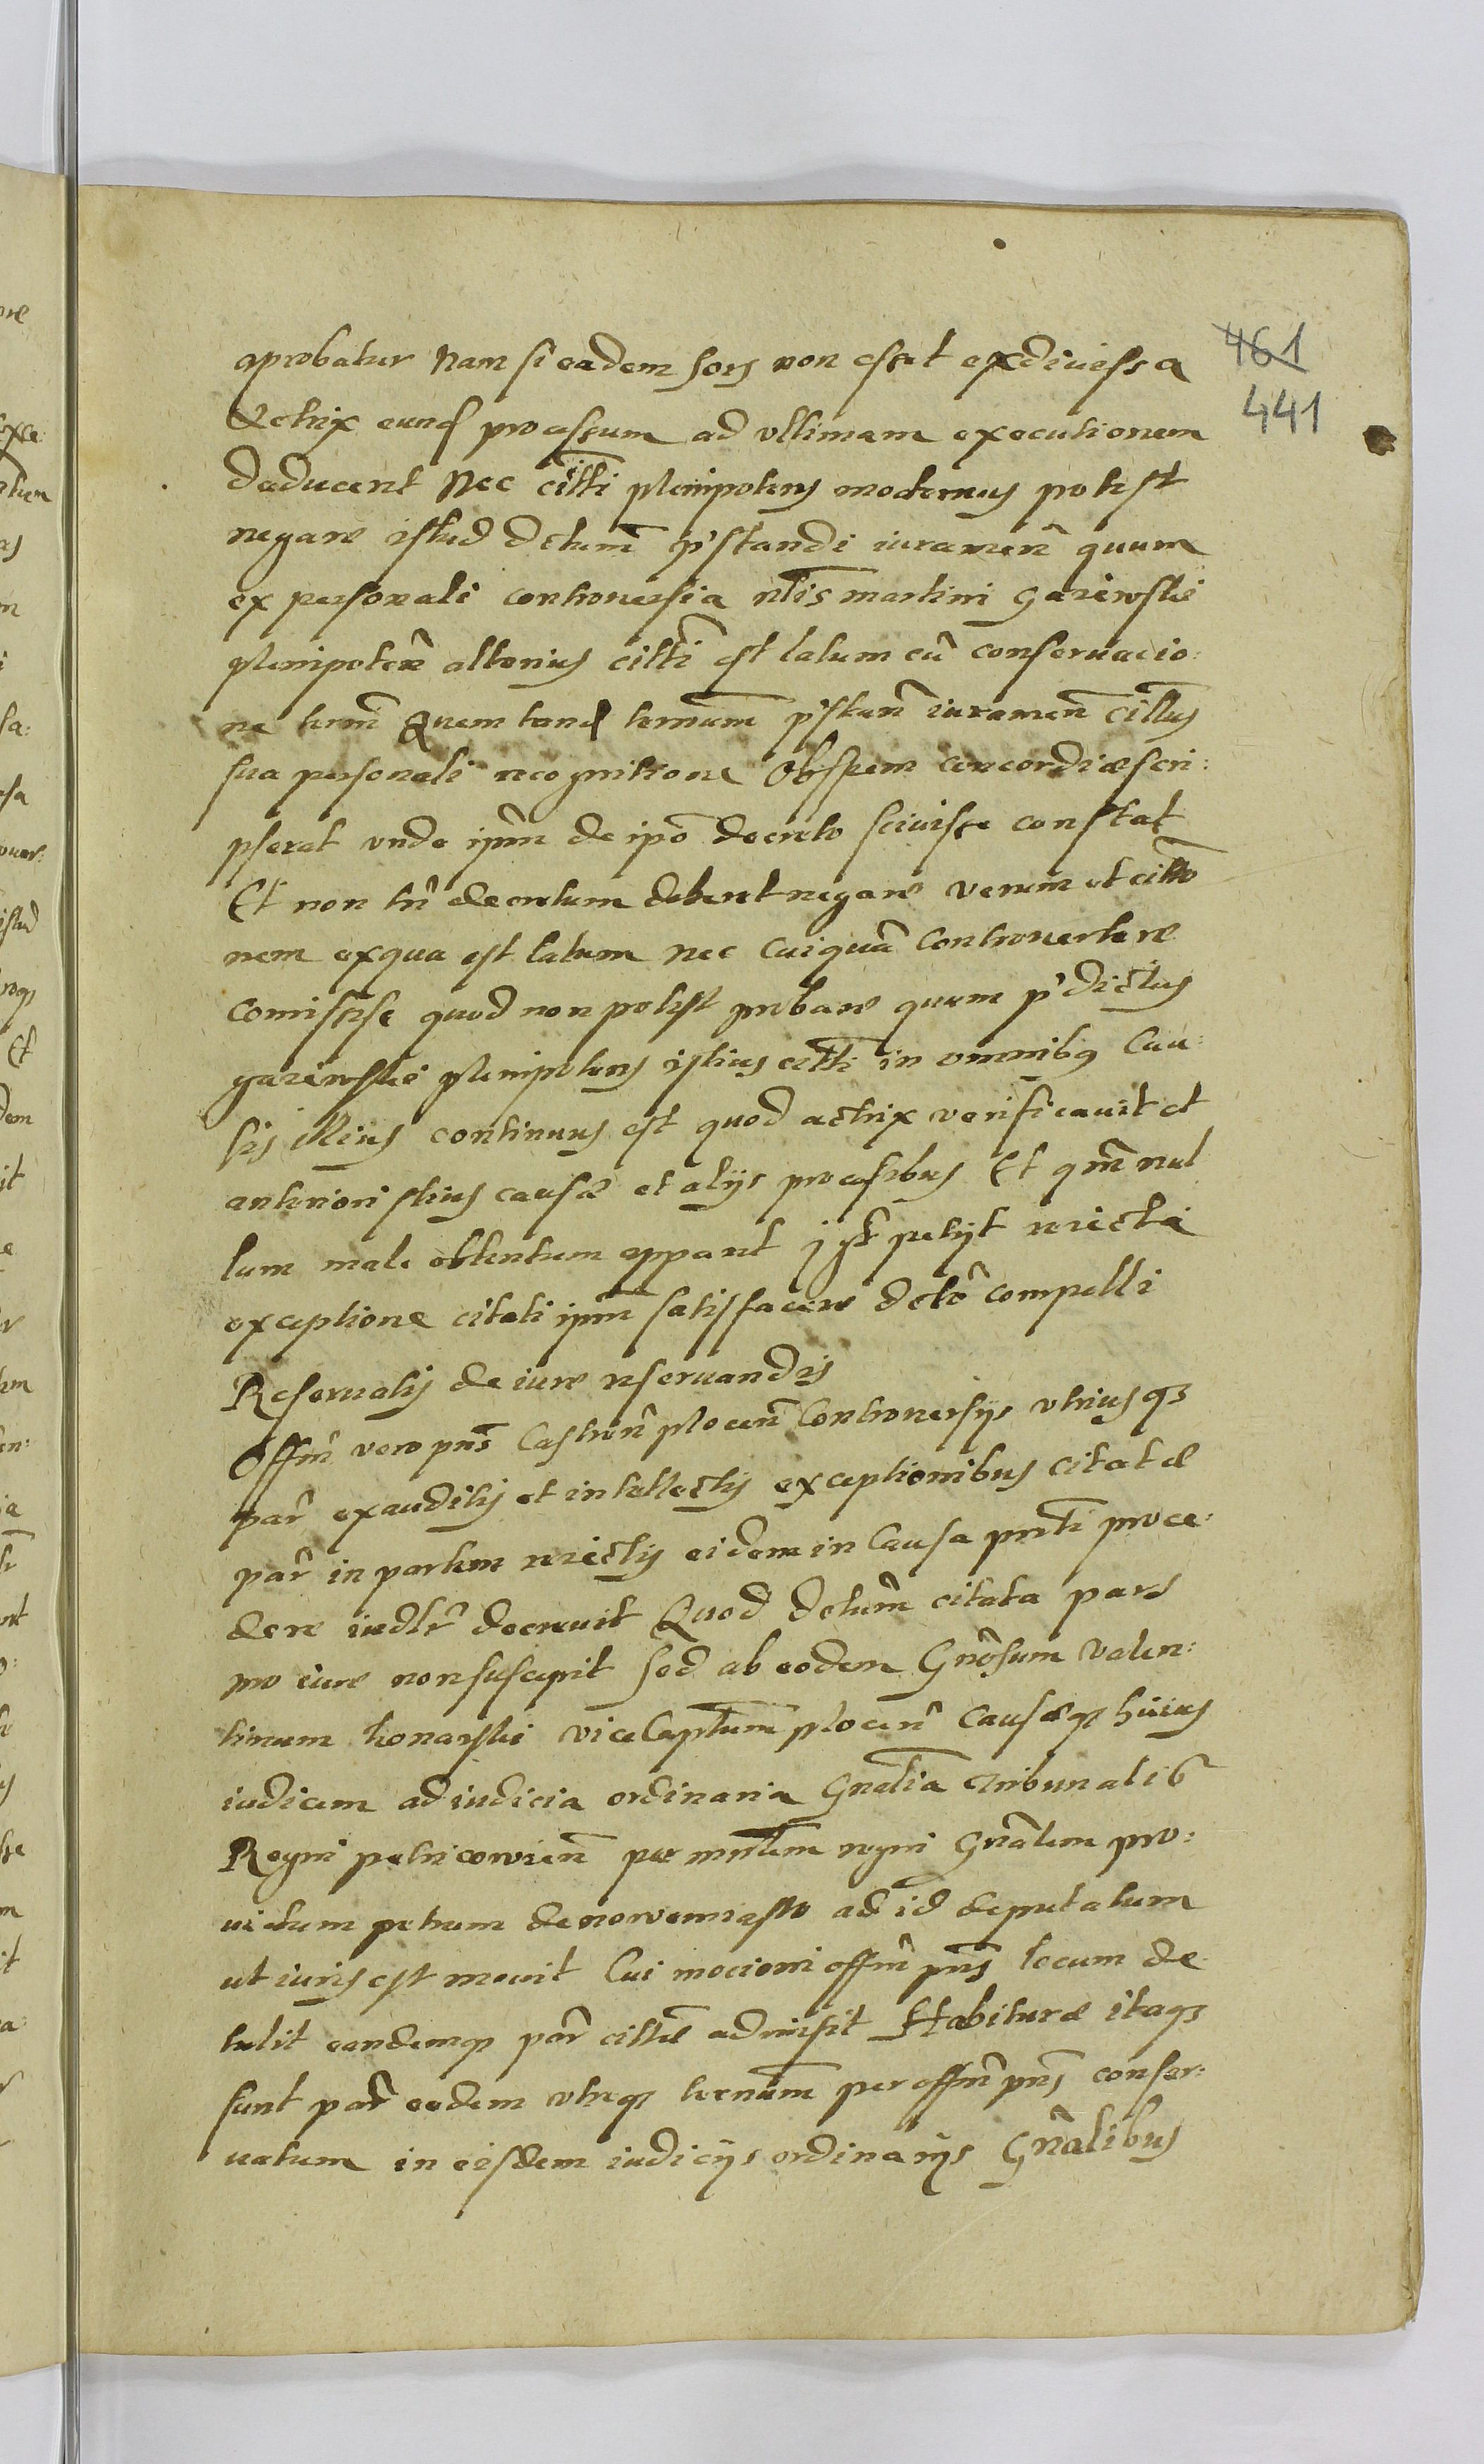 461
441
aprobatur Nam si eadem sors non esset ex diuessa
Actrix eund processum ad vltimam executionem
deducent Nec citti plenipotens modernus potest
negare istud dctum p'standi iuramen quum
ex personali controuersia nlis martini garewski
plenipoten alterius citti est latum cu conseruacio:
ne termi Quem tand termum p'standi iuramen cittus
sua personali recognitione Ob spem concordiæ scri:
pserat vnde ipm de ipo decreto sciuisse constat
Et non tn decretum debent negare verum et citto
nem ex qua est latum nec cuiqua controuertere
comisisse quod non potest probare quum p'dictus
garewski plenipotens istius citti in omnibus Cau:
sis illius continuus est quod actrix verificauit et
anteriori stius causæ et alijs processibus Et qm nul
lum male obtentum apparet petijt reiecta
exceptione citati ipm satisfacere dcto compelli
Reseruatis de iure reseruandis
Offm vero pns Castren plocen Controuersijs vtriusq3
par exauditis et intellectis exceptionibus citatæ
par in partem reiectis eidem in Causa pnti proce:
dere iudlr decreuit Quod dctum citata pars
pro iure non suscepit sed ab eodem Gnosum Valen:
tinum konarski viceCaptum plocen Causæq3 huius
iudicem ad iudicia ordinaria Gnalia Tribunalis
Regni petricowien per mnlem regni Gnalem pro:
uidum petrum de nowemiasto ad id deputatum
ut iuris est mouit Cui mocioni offm pns locum de
tulit eandemq3 par cittæ admisit Habituræ itaq3
sunt par eedem vtreq3 ternum per offm pns conser:
uatum in eisdem iudicijs ordinarijs Gnalibus